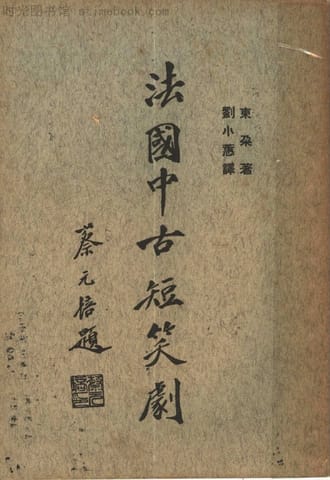 时光图书馆 atimebook.com
東朵著
劉小蕙譯
法國中古短笑劇
蔡元培題